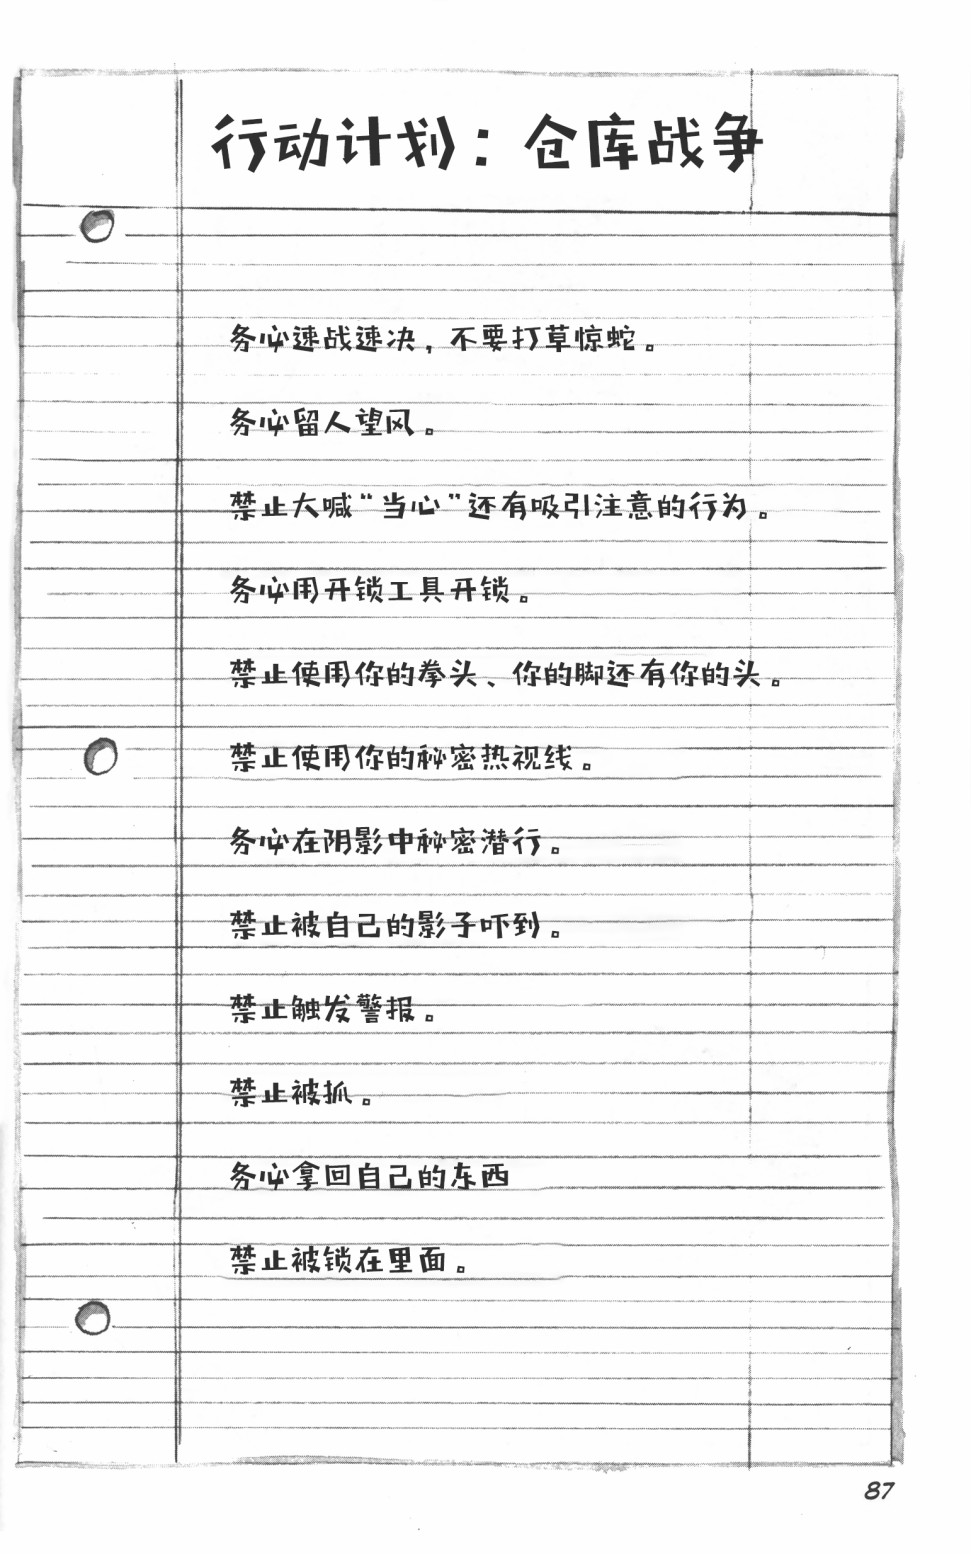 行动计划：仓库战争
务必速战速决，不要打草惊蛇。
务必留人望风。
禁止大喊“当心”还有吸引注意的行为。
务必用开锁工具开锁。
禁止使用你的拳头、你的脚还有你的头。
禁止使用你的秘密热视线。
务必在阴影中秘密潜行。
禁止被自己的影子吓到。
禁止触发警报。
禁止被抓。
务必拿回自己的东西
禁止被锁在里面。
87